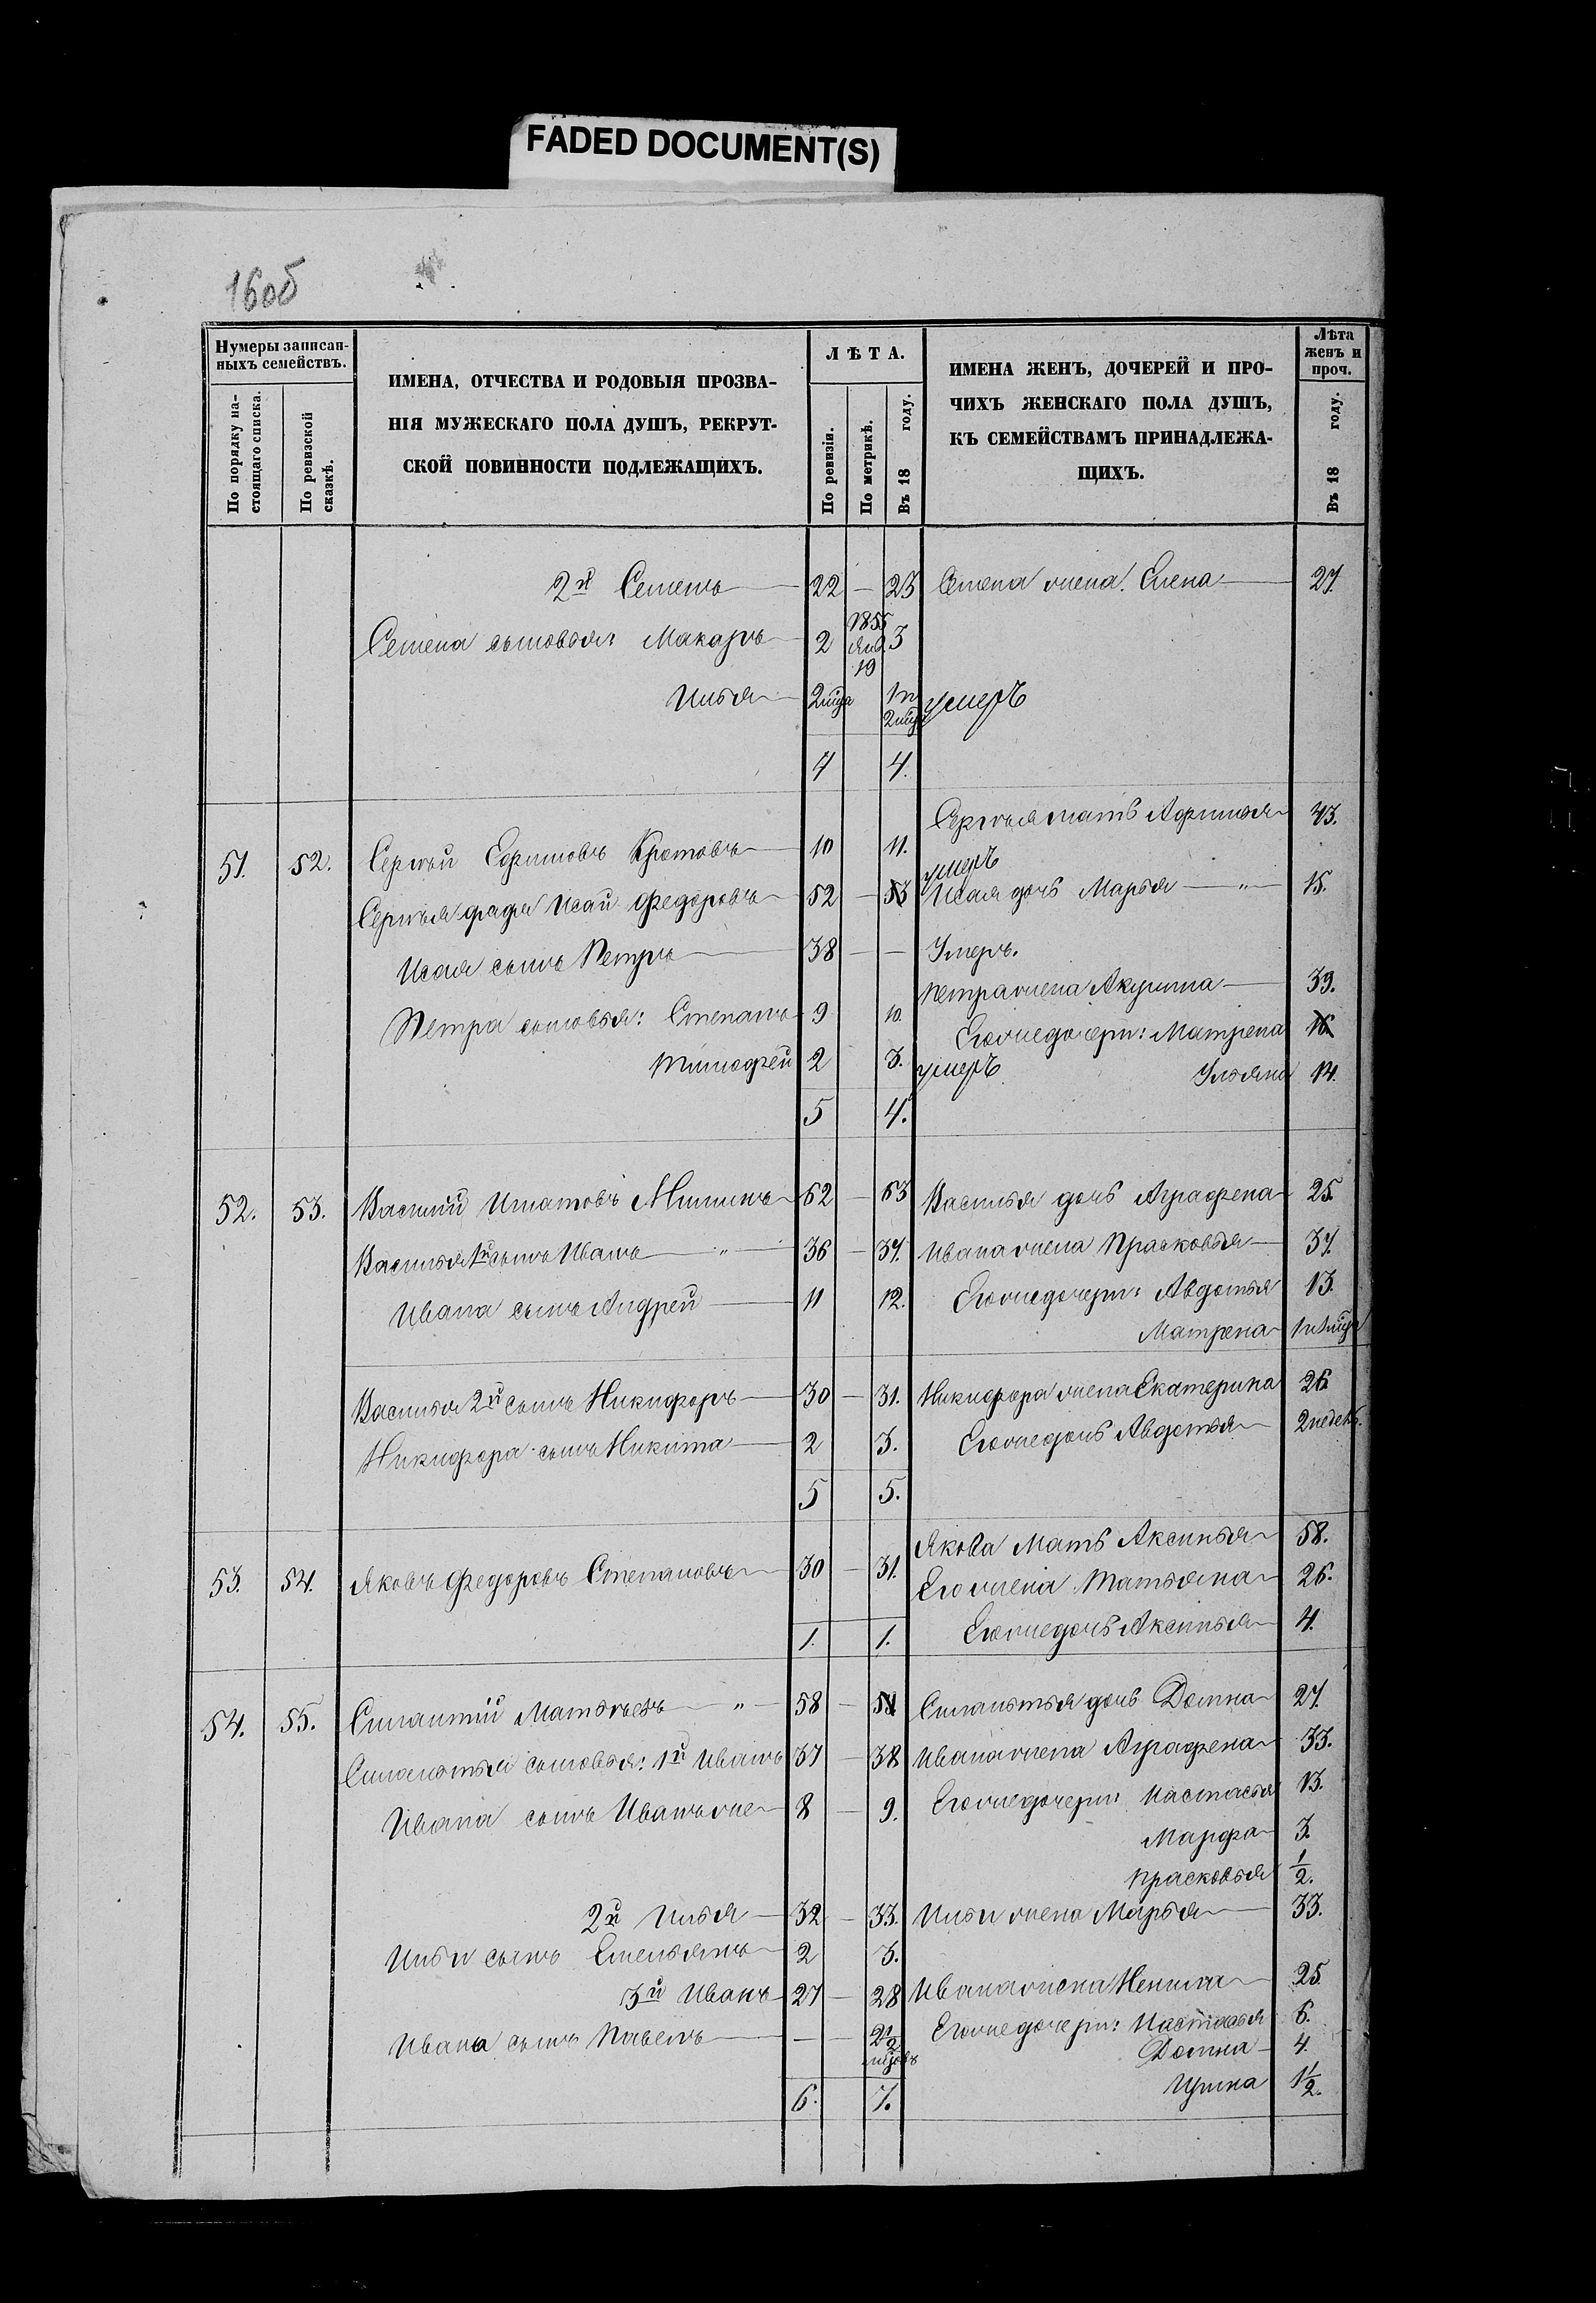 FADED DOCUMENT(S)
16об
Нумеры записан-
ныхъ семействъ.
По порядку на-
стоящаго списка.
По ревизской
сказкѣ.
ИМЕНА, ОТЧЕСТВА И РОДОВЫЯ ПРОЗВА-
НІЯ МУЖЕСКАГО ПОЛА ДУШЪ, РЕКРУТ-
СКОЙ ПОВИННОСТИ ПОДЛЕЖАЩИХЪ.
ЛѢТА.
По ревизіи.
По метрикѣ.
Въ 18 году.
ИМЕНА ЖЕНЪ, ДОЧЕРЕЙ И ПРО-
ЧИХЪ ЖЕНСКАГО ПОЛА ДУШЪ,
КЪ СЕМЕЙСТВАМЪ ПРИНАДЛЕЖА-
ЩИХЪ.
Лѣта
женъ и
проч.
Въ 18 году.
2й Семенъ 22 — 23 Семена жена Елена 27.
Семена сыновья: Макаръ 2 1855 Янв. 19 3
Илья 2 мца 1 и 2 мца умеръ
4 4.
Сергѣя мать Афимья 43.
51. 52. Сергѣй Ефимовъ Кротовъ 10 11.
умеръ
Сергѣя дядя Исай Федоровъ 52 — 53 Исая дочь Марья — " — 15.
Исая сынъ Петръ 38 — — Умеръ.
Петра жена Акулина 39.
Петра сыновья: Степанъ 9 10.
Его же дочери: Матрена 16
Тимофей 2 3. умеръ Ульяна 14.
5 4.
52. 53. Василий Игнатовъ Мишинъ 62 — 63 Василья дочь Аграфена 25.
Василья 1й сынъ Иванъ — " — 36 — 37. Ивана жена Прасковья 37.
Ивана сынъ Андрей 11 12. Его же дочери: Авдотья 13.
Матрена
Василья 2й сынъ Никифоръ 30 — 31. Никифора жена Екатерина 26.
Никифора сынъ Никита 2 3. Его же дочь Авдотья 2 недель.
5 5.
Якова Мать Аксинья 58.
53. 54. Яковъ Федоровъ Степановъ 30 — 31. Его жена Татьяна 26.
1. 1. Его же дочь Аксинья 4.
54. 55. Силантий Матвѣевъ — " — 58 — Силантья дочь Домна 27.
Силантья сыновья: 1й Иванъ 37 — 38 Ивана жена Аграфена 33.
Ивана сынъ Иванъ же 8 — 9. Его же дочери: Настасья 13.
Марфа 3.
Прасковья 1/2.
2й Илья 32 — 33. Ильи жена Марья 33.
Ильи сынъ Емельянъ 2 3.
3й Иванъ 27 — 28 Ивана жена Ненила 25.
Ивана сынъ Павелъ — — 2 1/2 Его же дочери: Настасья 6.
Домна 4.
Ирина 1 1/2.
6. 7.